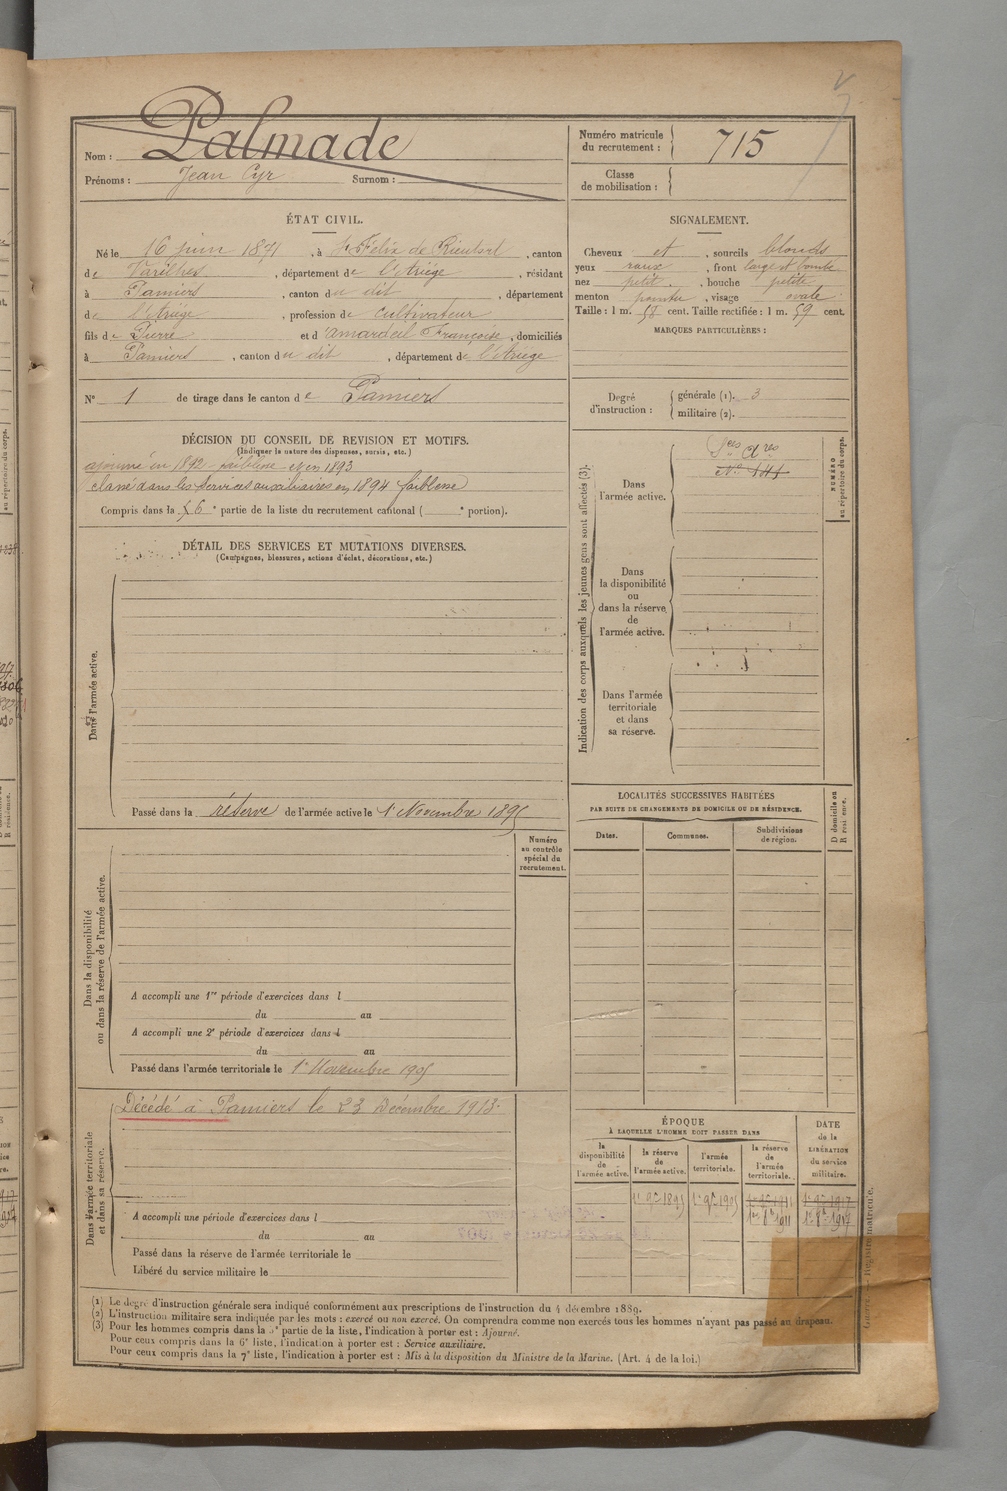 Nom : Palmade
Prénoms : Jean Cyr Surnom :
Numéro matricule du recrutement : 715
Classe de mobilisation :
ÉTAT CIVIL.
Né le 16 juin 1871, à St Félix de Rieutort, canton
de Varilhes, département de l'Ariège, résidant
à Pamiers, canton du dit, département
de l'Ariège, profession de cultivateur
fils de Pierre et d'amardeil Françoise, domiciliés
à Pamiers, canton du dit, département de l'Ariège
N° 1 de tirage dans le canton de Pamiers
SIGNALEMENT.
Cheveux et, sourcils blonds
yeux roux, front large et bombé
nez petit, bouche petite
menton pointu, visage ovale
Taille : 1 m. 58 cent. Taille rectifiée : 1 m. 59 cent.
MARQUES PARTICULIÈRES :
Degré d'instruction : générale (1). 3
militaire (2).
DÉCISION DU CONSEIL DE REVISION ET MOTIFS.
(Indiquer la nature des dispenses, sursis, etc.)
ajourné en 1892 - faiblesse et en 1893
classé dans les services auxiliaires en 1894 faiblesse
Compris dans la 6e partie de la liste du recrutement cantonal ( e portion).
DÉTAIL DES SERVICES ET MUTATIONS DIVERSES.
(Campagnes, blessures, actions d'éclat, décorations, etc.)
Dans l'armée active.
Passé dans la réserve de l'armée active le 1er Novembre 1895
Numéro au contrôle spécial du recrutement.
Dans la disponibilité ou dans la réserve de l'armée active.
A accompli une 1re période d'exercices dans l
du au
A accompli une 2e période d'exercices dans l
du au
Passé dans l'armée territoriale le 1er Novembre 1905
Dans l'armée territoriale et dans sa réserve.
Décédé à Pamiers le 23 Décembre 1913.
A accompli une période d'exercices dans l
du au
Passé dans la réserve de l'armée territoriale le
Libéré du service militaire le
Indication des corps auxquels les jeunes gens sont affectés (3).
Dans l'armée active.
Sces Ares
N° 141
NUMÉRO au répertoire du corps.
Dans la disponibilité ou dans la réserve de l'armée active.
Dans l'armée territoriale et dans sa réserve.
LOCALITÉS SUCCESSIVES HABITÉES
PAR SUITE DE CHANGEMENTS DE DOMICILE OU DE RÉSIDENCE.
Dates. Communes. Subdivisions de région.
D domicile ou R résidence.
ÉPOQUE
À LAQUELLE L'HOMME DOIT PASSER DANS
la disponibilité de l'armée active.
la réserve de l'armée active.
l'armée territoriale.
la réserve de l'armée territoriale.
DATE de la LIBÉRATION du service militaire.
1er 9bre 1895 1er 9bre 1905 1er 9bre 1911 1er 9bre 1917
1er 8bre 1911 1er 8bre 1917
(1) Le degré d'instruction générale sera indiqué conformément aux prescriptions de l'instruction du 4 décembre 1889.
(2) L'instruction militaire sera indiquée par les mots : exercé ou non exercé. On comprendra comme non exercés tous les hommes n'ayant pas passé au drapeau.
(3) Pour les hommes compris dans la 5e partie de la liste, l'indication à porter est : Ajourné.
Pour ceux compris dans la 6e liste, l'indication à porter est : Service auxiliaire.
Pour ceux compris dans la 7e liste, l'indication à porter est : Mis à la disposition du Ministre de la Marine. (Art. 4 de la loi.)
Registre matricule.